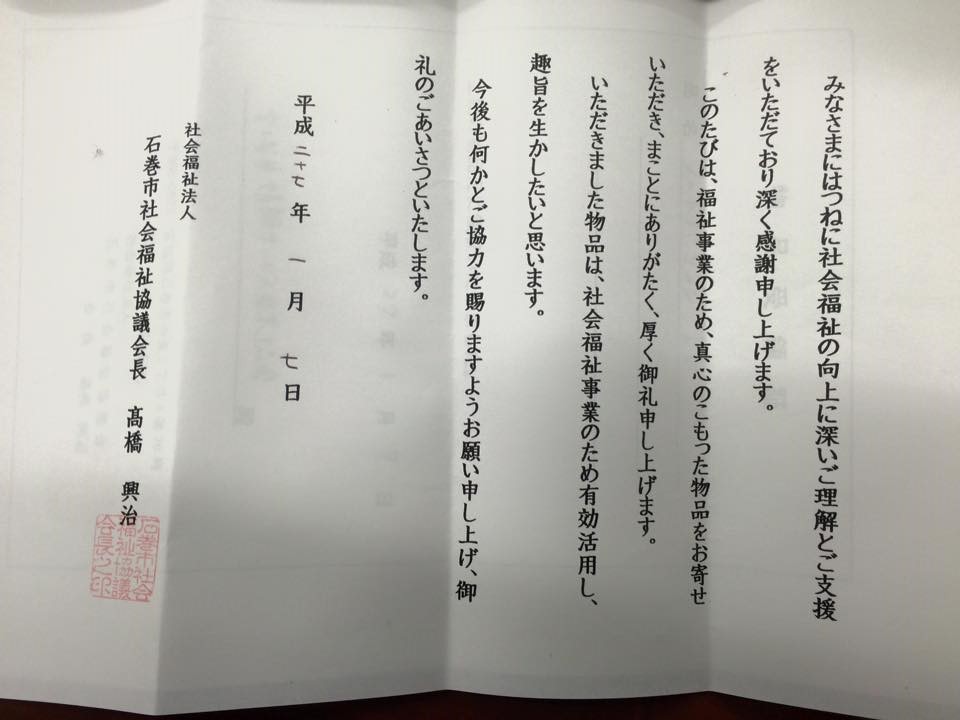 みなさまにはつねに社会福祉の向上に深いご理解とご支援
をいただており深く感謝申し上げます。
このたびは、福祉事業のため、真心のこもった物品をお寄せ
いただき、まことにありがたく、厚く御礼申し上げます。
いただきました物品は、社会福祉事業のため有効活用し、
趣旨を生かしたいと思います。
今後も何かとご協力を賜りますようお願い申し上げ、御
礼のごあいさつといたします。
平成二十七年一月七日
社会福祉法人
石巻市社会福祉協議会長 髙橋 興治
石巻市社会
福祉協議
会長之印